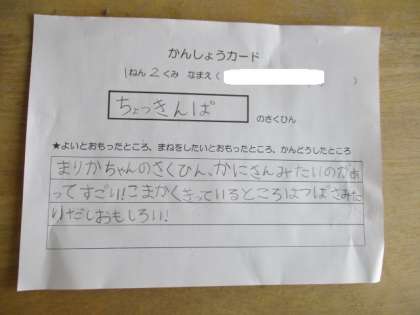 かんしょうカード
1ねん2くみ なまえ( )
ちょっきんぱ
のさくひん
★よいとおもったところ、まねをしたいとおもったところ、かんどうしたところ
まりかちゃんのさくひん、かにさんみたいのがあ
ってすごい!こまかくきっているところはつばさみた
りだしおもしろい!